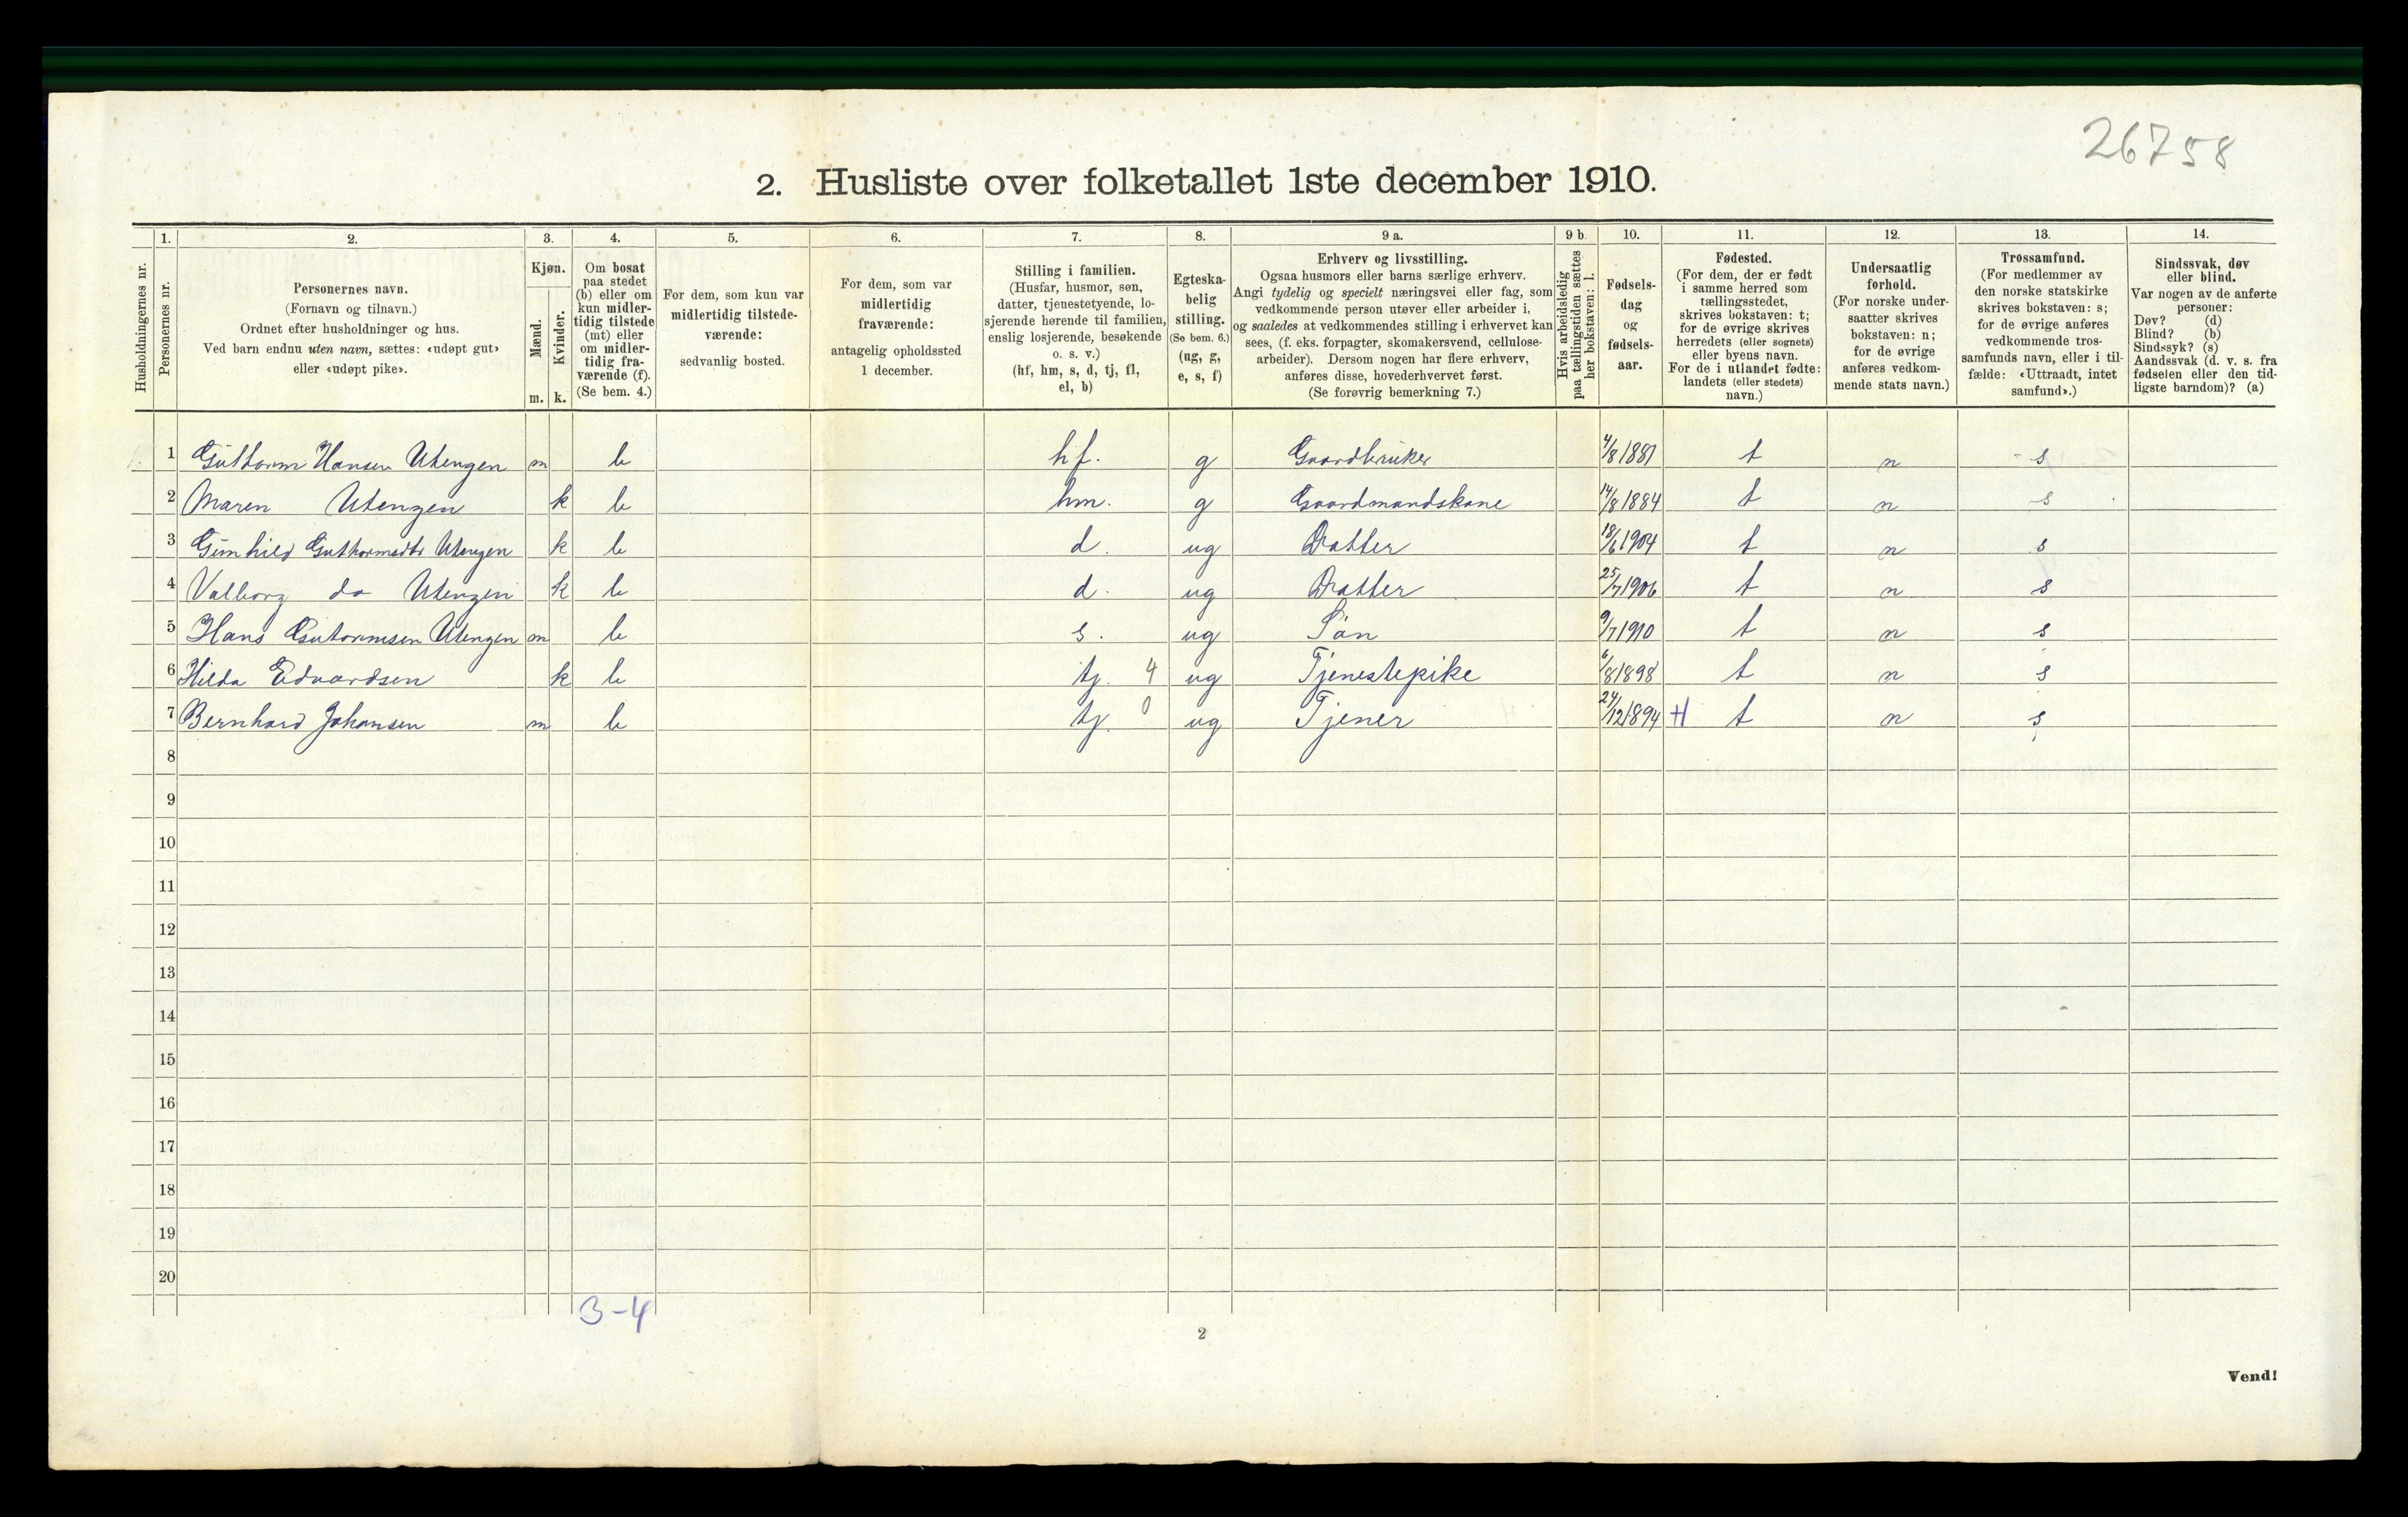 26758
2. Husliste over folketallet 1ste december 1910.
1. 2. 3. 4. 5. 6. 7. 8. 9 a. 9 b. 10. 11. 12. 13. 14.
Husholdningernes nr.
Personernes nr.
Personernes navn.
(Fornavn og tilnavn.)
Ordnet efter husholdninger og hus.
Ved barn endnu uten navn, sættes: «udøpt gut»
eller «udøpt pike».
Kjøn.
Mænd.
Kvinder.
m. k.
Om bosat
paa stedet
(b) eller om
kun midler-
tidig tilstede
(mt) eller
om midler-
tidig fra-
værende (f).
(Se bem. 4.)
For dem, som kun var
midlertidig tilstede-
værende:
sedvanlig bosted.
For dem, som var
midlertidig
fraværende:
antagelig opholdssted
1 december.
Stilling i familien.
(Husfar, husmor, søn,
datter, tjenestetyende, lo-
sjerende hørende til familien,
enslig losjerende, besøkende
o. s. v.)
(hf, hm, s, d, tj, fl,
el, b)
Egteska-
belig
stilling.
(Se bem. 6.)
(ug, g,
e, s, f)
Erhverv og livsstilling.
Ogsaa husmors eller barns særlige erhverv.
Angi tydelig og specielt næringsvei eller fag, som
vedkommende person utøver eller arbeider i,
og saaledes at vedkommendes stilling i erhvervet kan
sees, (f. eks. forpagter, skomakersvend, cellulose-
arbeider). Dersom nogen har flere erhverv,
anføres disse, hovederhvervet først.
(Se forøvrig bemerkning 7.)
Hvis arbeidsledig
paa tællingstiden sættes
her bokstaven: l.
Fødsels-
dag
og
fødsels-
aar.
Fødested.
(For dem, der er født
i samme herred som
tællingsstedet,
skrives bokstaven: t;
for de øvrige skrives
herredets (eller sognets)
eller byens navn.
For de i utlandet fødte:
landets (eller stedets)
navn.)
Undersaatlig
forhold.
(For norske under-
saatter skrives
bokstaven: n;
for de øvrige
anføres vedkom-
mende stats navn.)
Trossamfund.
(For medlemmer av
den norske statskirke
skrives bokstaven: s;
for de øvrige anføres
vedkommende tros-
samfunds navn, eller i til-
fælde: «Uttraadt, intet
samfund».)
Sindssvak, døv
eller blind.
Var nogen av de anførte
personer:
Døv? (d)
Blind? (b)
Sindssyk? (s)
Aandssvak (d. v. s. fra
fødselen eller den tid-
ligste barndom)? (a)
1 Guthorm Hansen Utengen m b hf. g Gaardbruker 4/8 1881 t n s
2 Maren Utengen k b hm. g Gaardmandskone 14/8 1884 t n s
3 Gunhild Guthormsdtr Utengen k b d. ug Datter 18/6 1904 t n s
4 Valborg do Utengen k b d. ug Datter 25/7 1906 t n s
5 Hans Gutormsen Utengen m b s. ug Søn 9/7 1910 t n s
6 Hilda Edvardsen k b tj. 4 ug Tjenestepike 6/8 1898 t n s
7 Bernhard Johansen m b tj. 0 ug Tjener 24/12 1894 H t n s
8
9
10
11
12
13
14
15
16
17
18
19
20
3-4
2
Vend!